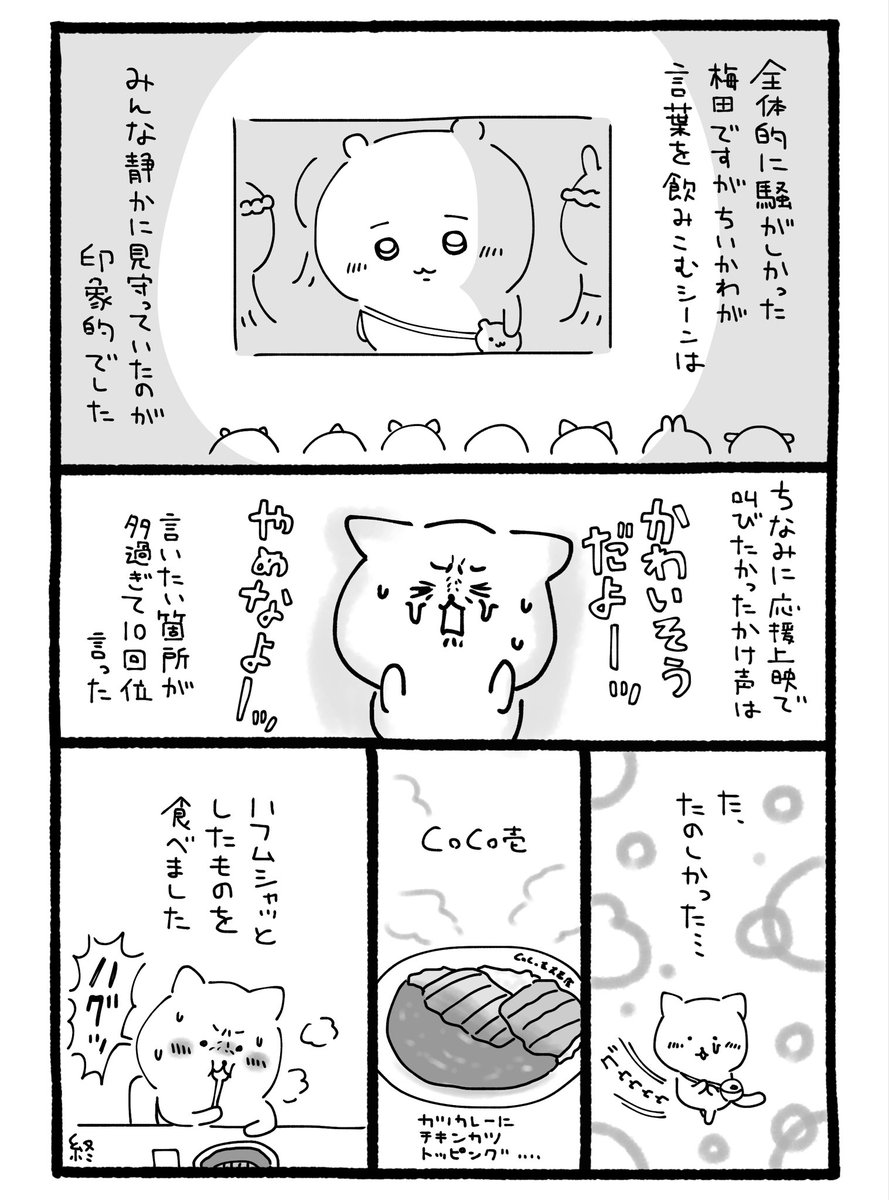 全体的に騒がしかった
梅田ですがちいかわが
言葉を飲みこむシーンは
みんな静かに見守っていたのが
印象的でした
ちなみに応援上映で
叫びたかったかけ声は
かわいそう
だよーッ
やめなよーッ
言いたい箇所が
多過ぎて10回位
言った
た、
たのしかった…
CoCo壱
カツカレーに
チキンカツ
トッピング....
ハフムシャッと
したものを
食べました
ハグッ
終